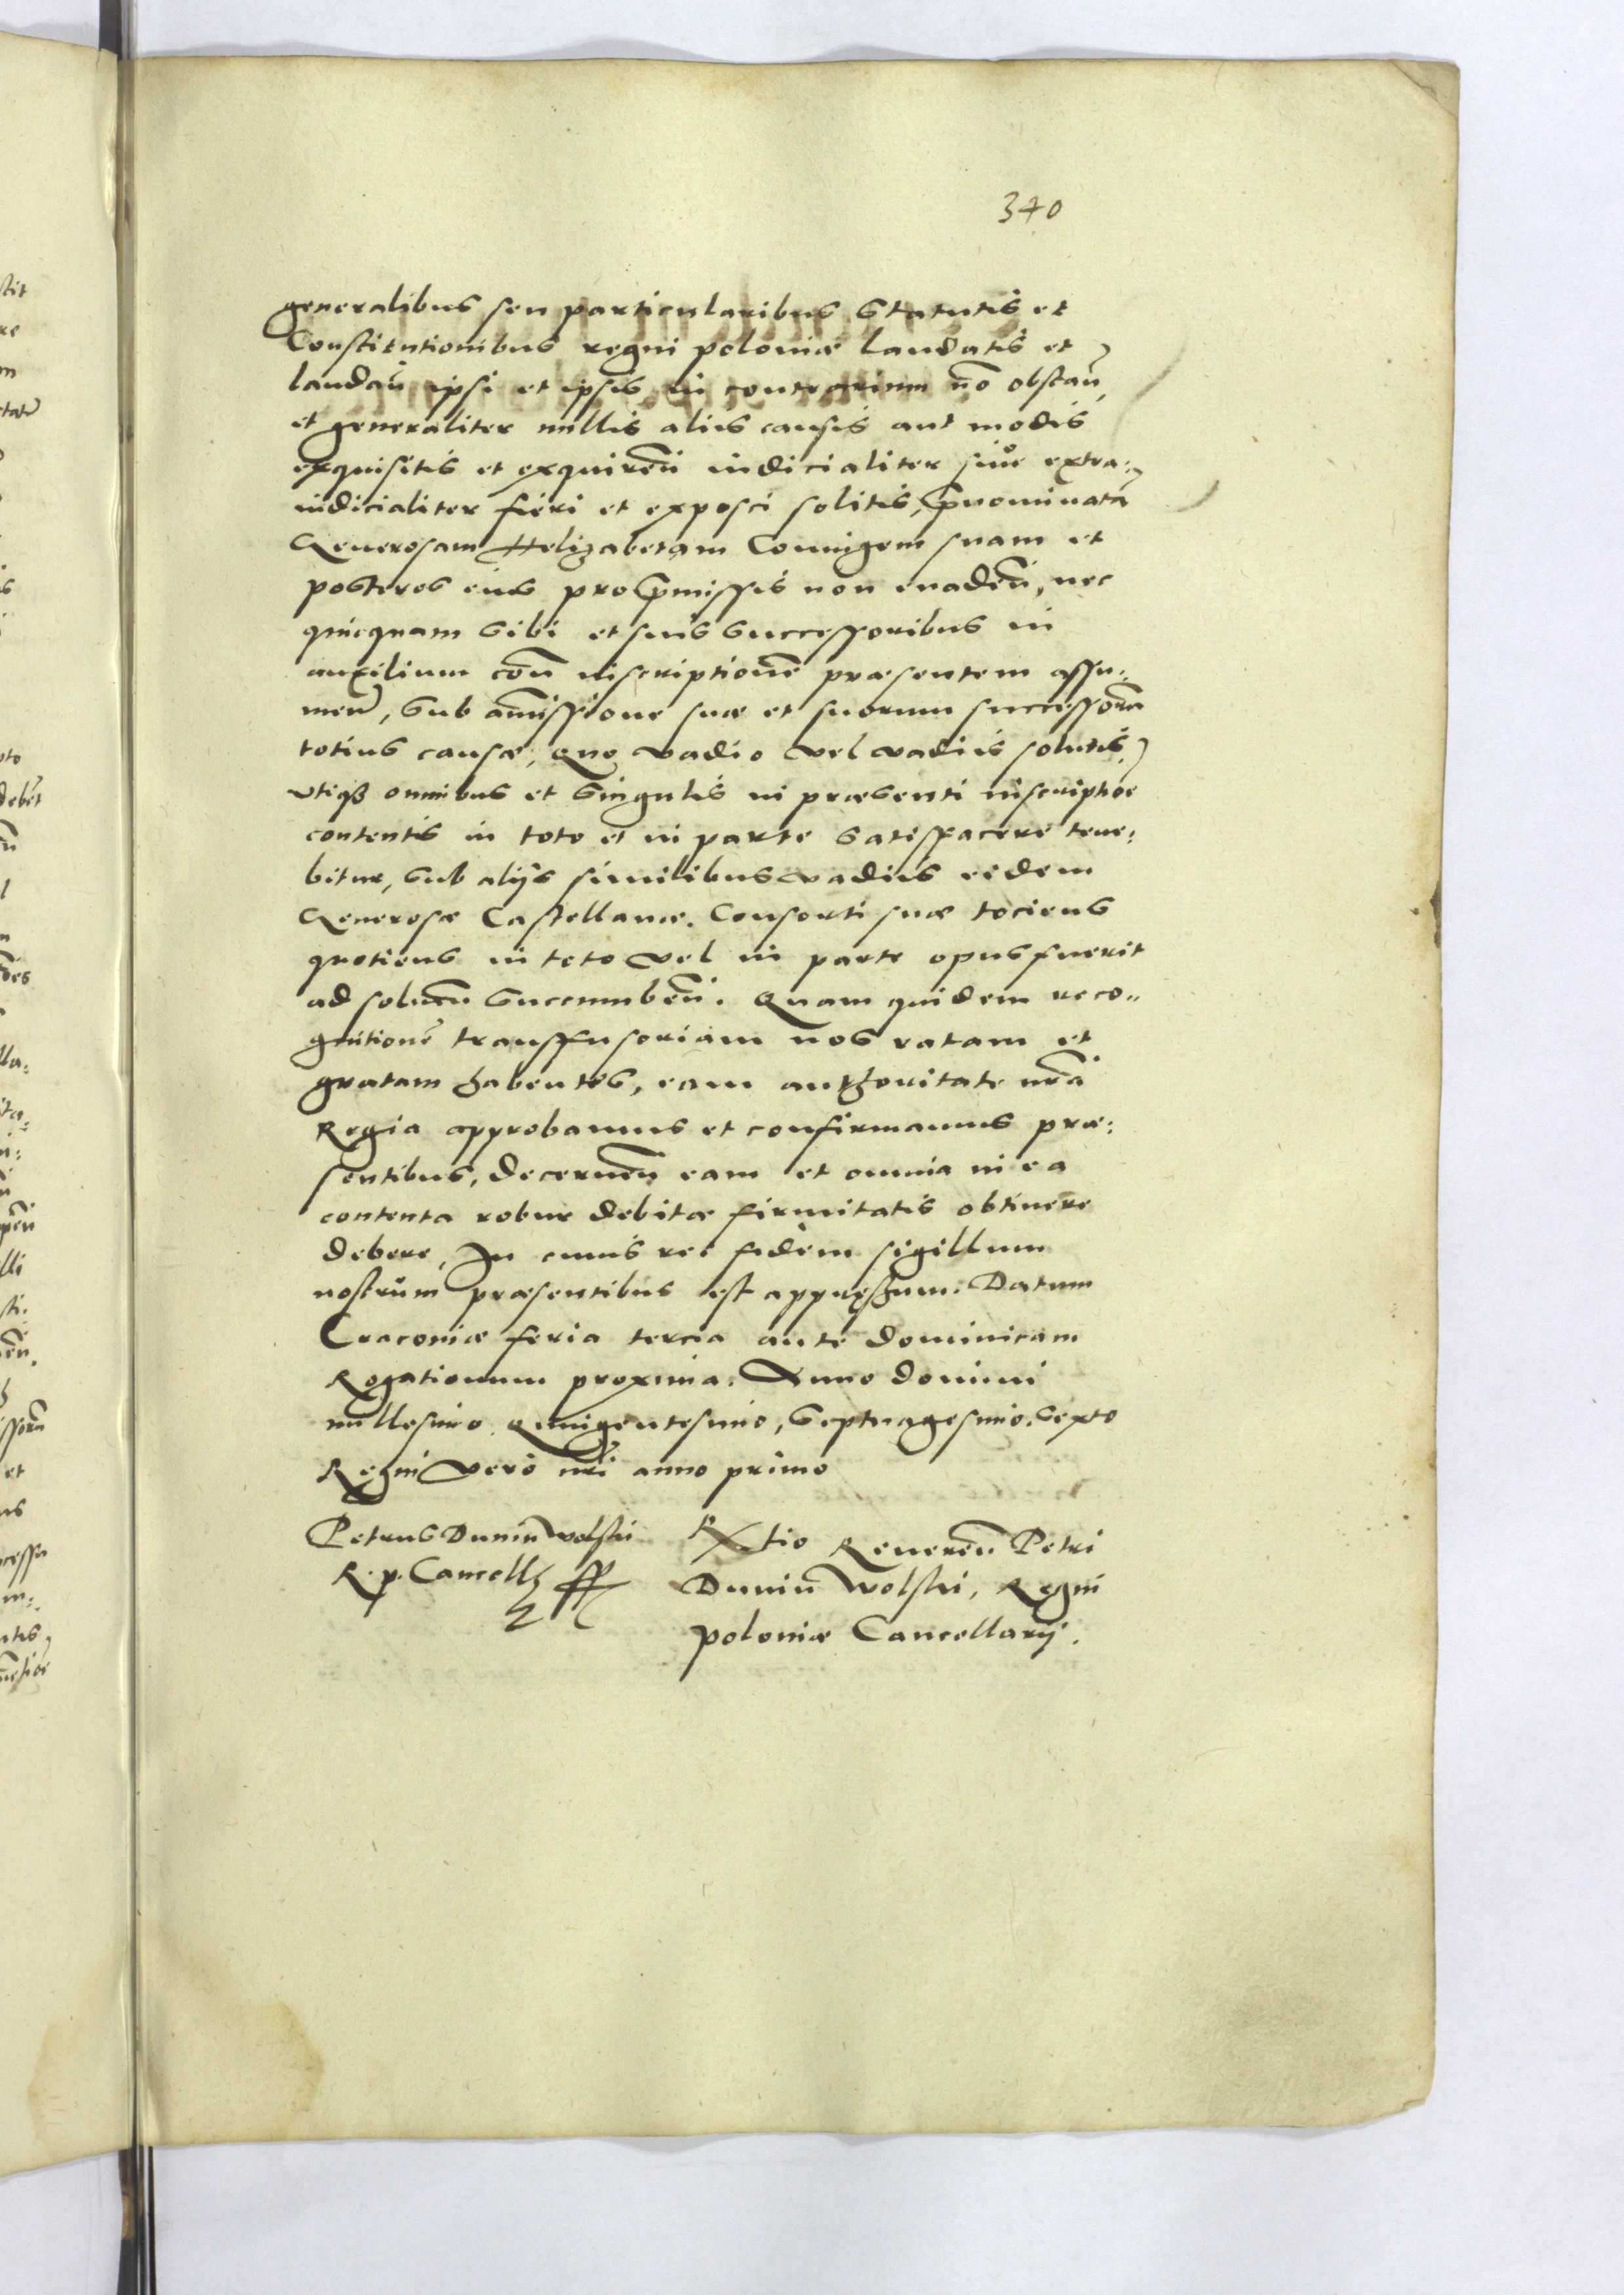 340
generalibus seu particularibus Statutis et
Constitutionibus regni poloniæ laudatis et
laudañ ipsi et ipsis in contrarium nõ obstañ,
et generaliter nullis aliis causis aut modis
exquisitis et exquireñ iudicialiter siue extra:
iudicialiter fieri et exposci solitis, p̃nominatã
Generosam Helizabetam Coniugem suam et
posteros eius pro p̃missis non euadeñ, nec
quicquam Sibi et suis Successoribus in
auxilium coñ inscriptionẽ præsentem assu:
meñ, Sub amissione suæ et suorum successorũ
totius causæ, Quo vadio vel vadiis solutis,
vtiqꝫ omnibus et Singulis in præsenti inscriptiõe
contentis in toto et in parte Satisfacere tene:
bitur, Sub alijs similibus vadiis eidem
Generosæ Castellanæ. Consorti suæ tociens
quotiens in toto vel in parte opus fuerit
ad solueñ Succumbeñ. Quam quidem reco:
gnitionẽ transfusoriam nos ratam et
gratam habentes, eam authoritate nr̃a
Regia approbamus et confirmamus præ:
sentibus, Decerneñ eam et omnia in ea
contenta robur debitæ firmitatis obtinere
debere, In cuius rei fidem sigillum
nostrum præsentibus est appressum. Datum
Cracoviæ feria tercia ante dominicam
Rogationum proxima. Anno domini
millesimo Quingentesimo, Septuagesimo. Sexto
Regni vero nr̃i anno primo
Petrus Dunin Wolski
R. p. Cancellꝫ
Rtio Reuereñ Petri
Duniñ Wolski, Regni
poloniæ Cancellarij.